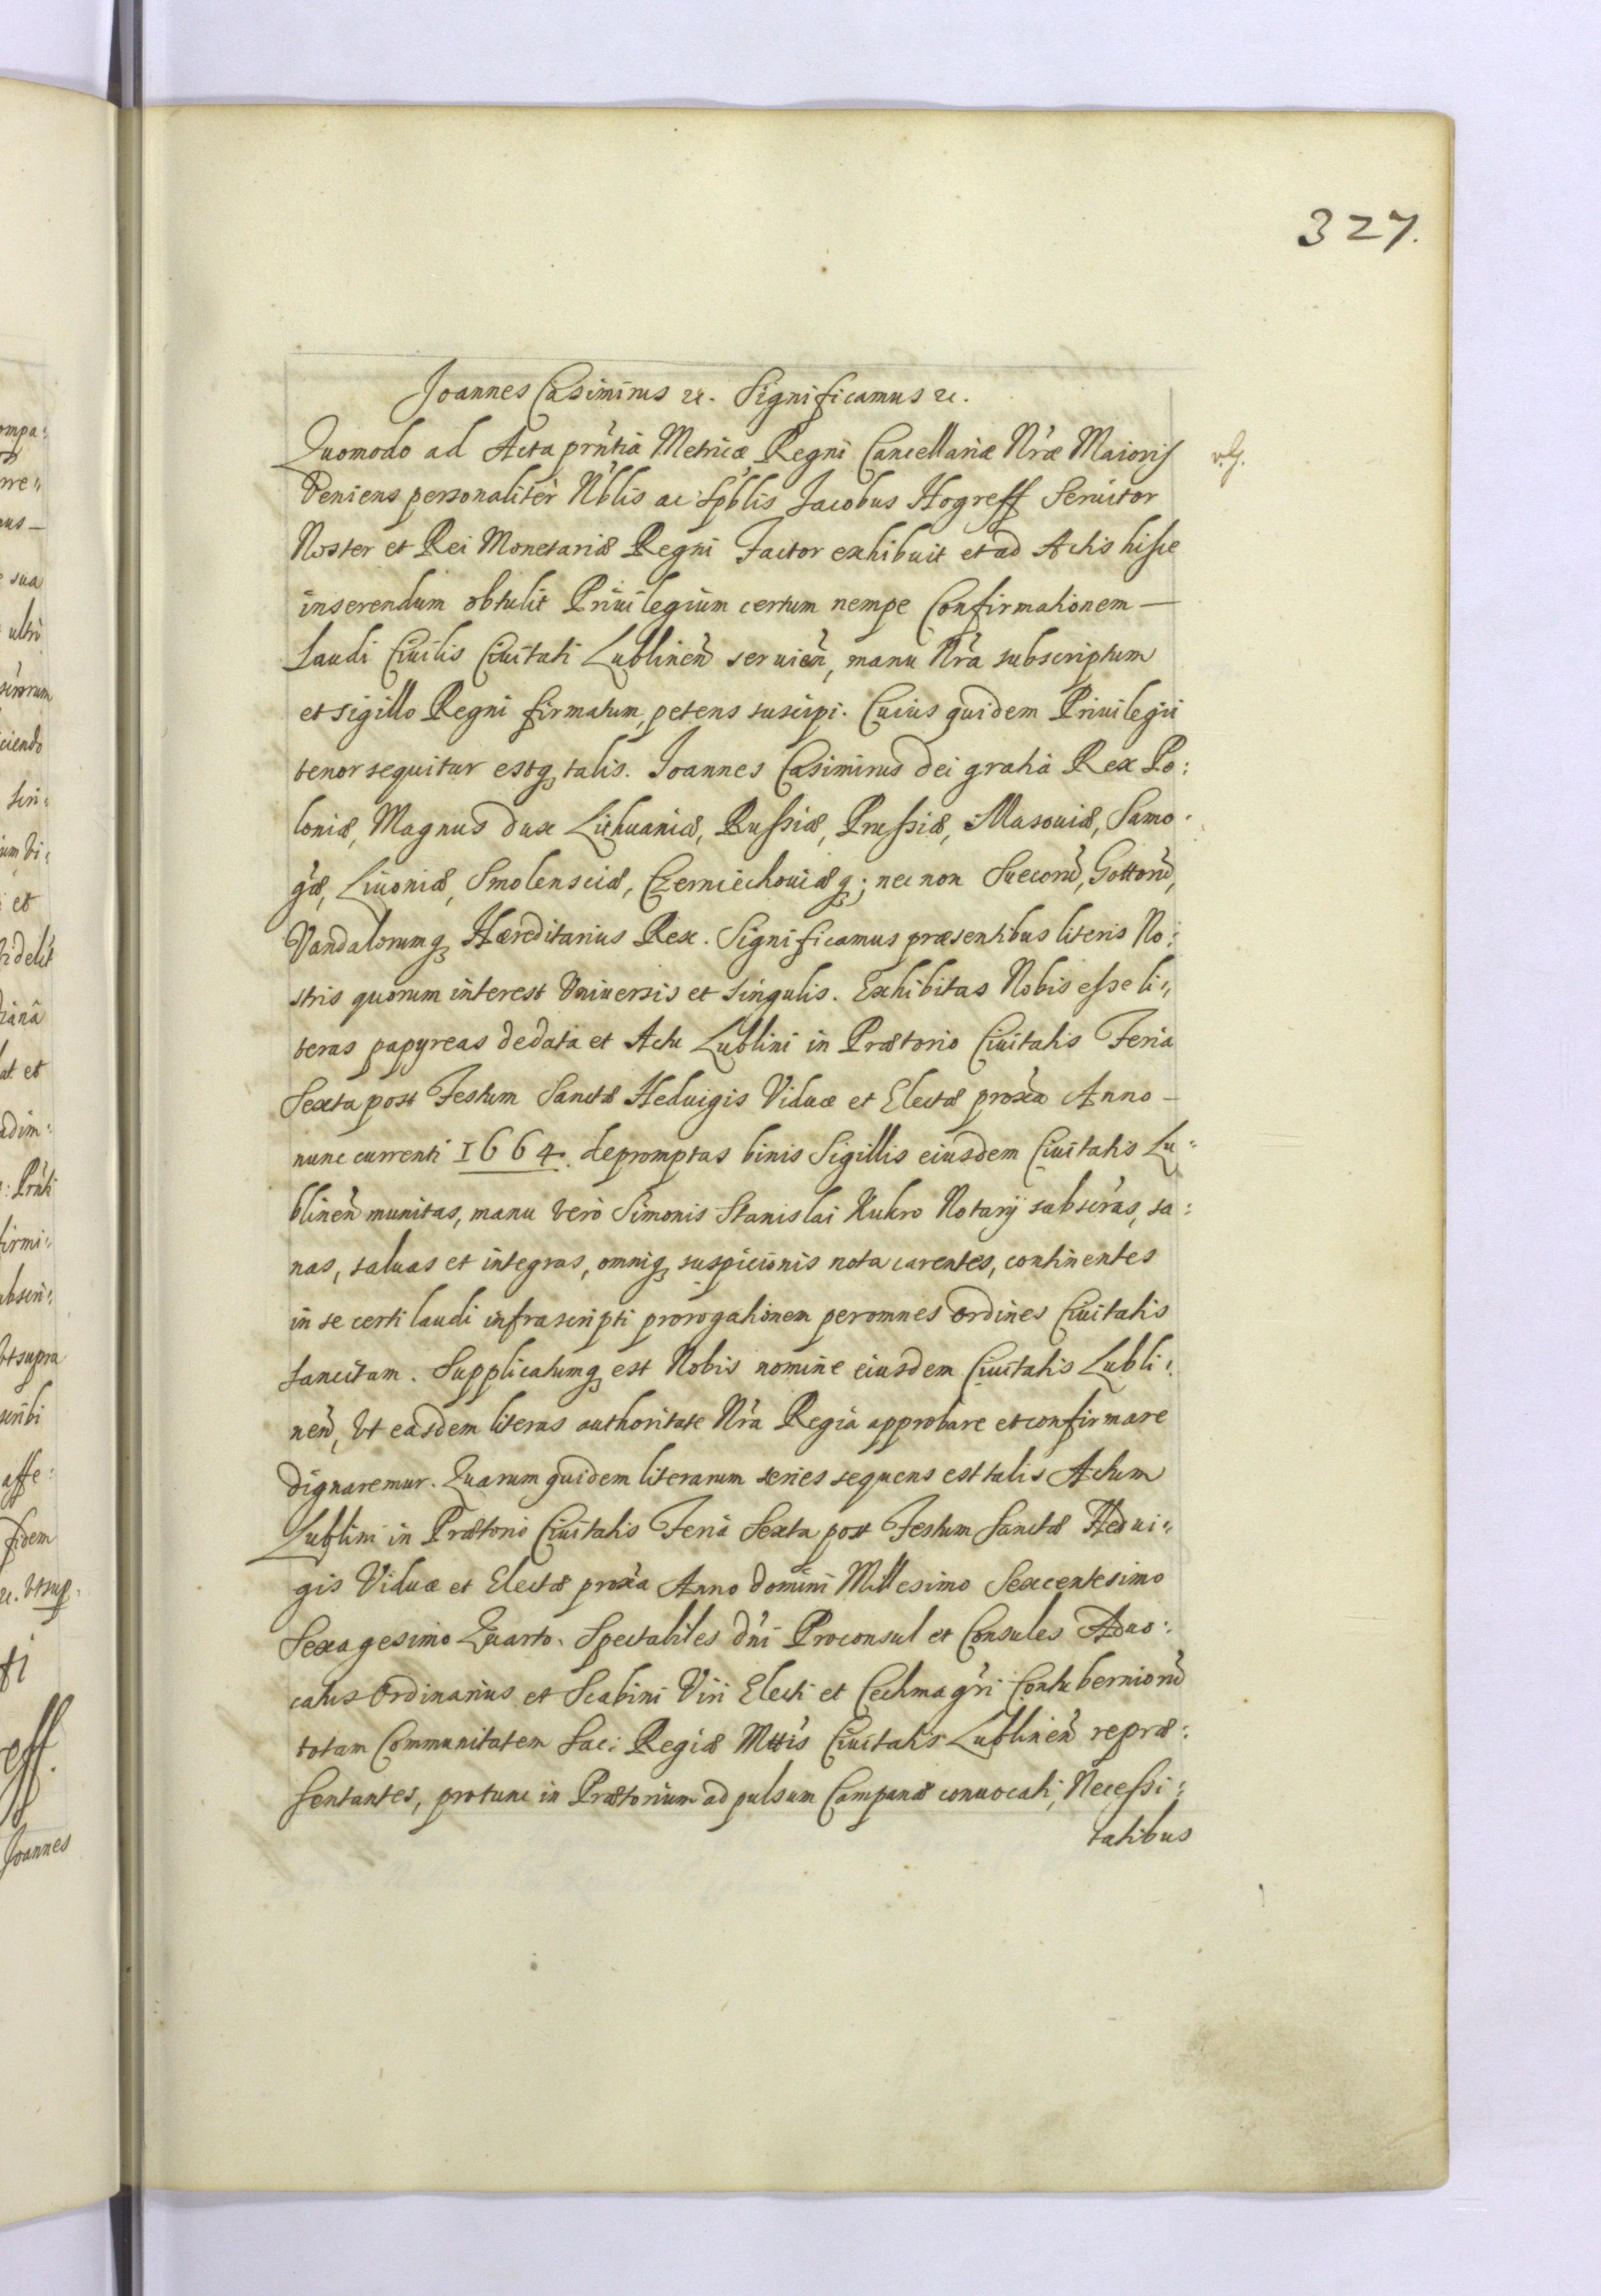 327.
Joannes Casimirus &c. Significamus &c.
Quomodo ad Acta prńtia Metricæ Regni Cancellariæ Nr̃æ Maioris
Veniens personaliter Nb̃lis ac Spb̃lis Jacobus Hogreff Seruitor
Noster et Rei Monetariæ Regni Factor exhibuit et ad Actis hisce
inserendum obtulit Priuilegium certum nempe Confirmationem —
Laudi Ciuilis Ciuitati Lublineñ seruieñ, manu Nr̃a subscriptum
et sigillo Regni firmatum, petens suscipi. Cuius quidem Priuilegii
tenor sequitur estq; talis. Joannes Casimirus Dei gratia Rex Po:
loniæ, Magnus dux Lithuaniæ, Russiæ, Prussiæ, Masouiæ, Samo:
g̃æ, Liuoniæ, Smolensciæ, Czerniechouiæq; nec non Suecorũ, Gottorũ,
Vandalorumq; Hæreditarius Rex. Significamus præsentibus literis No:
stris quorum interest Vniuersis et singulis. Exhibitas Nobis esse li:
teras papyreas de data et Actu Lublini in Prætorio Ciuitatis Feria
Sexta post Festum Sanctæ Heduigis Viduæ et Electæ prox̃a Anno —
nunc currenti 1664. depromptas binis Sigillis eiusdem Ciuitatis Lu:
blineñ munitas, manu vero Simonis Stanislai Kukro Notarij subscr̃as, sa:
nas, saluas et integras, omniq; suspicionis nota carentes, continentes
in se certi laudi infrascripti prorogationem per omnes ordines Ciuitatis
sancitam. Supplicatumq; est Nobis nomine eiusdem Ciuitatis Lubli:
neñ, Vt easdem literas authoritate Nr̃a Regia approbare et confirmare
dignaremur. Quarum quidem literarum series sequens est talis Actum
Lublini in Prætorio Ciuitatis Feria Sexta post Festum Sanctæ Hedui:
gis Viduæ et Electæ prox̃a Anno domini Millesimo Sexcentesimo
Sexagesimo Quarto. Spectabiles dñi Proconsul et Consules Aduo:
catus Ordinarius et Scabini Viri Electi et Cechmag̃ri Contuberniorũ
totam Communitatem Sac: Regiæ Mttis Ciuitatis Lublineñ repræ:
sentantes, pro tunc in Prætorium ad pulsum Campanæ conuocati, Necessi:
tatibus